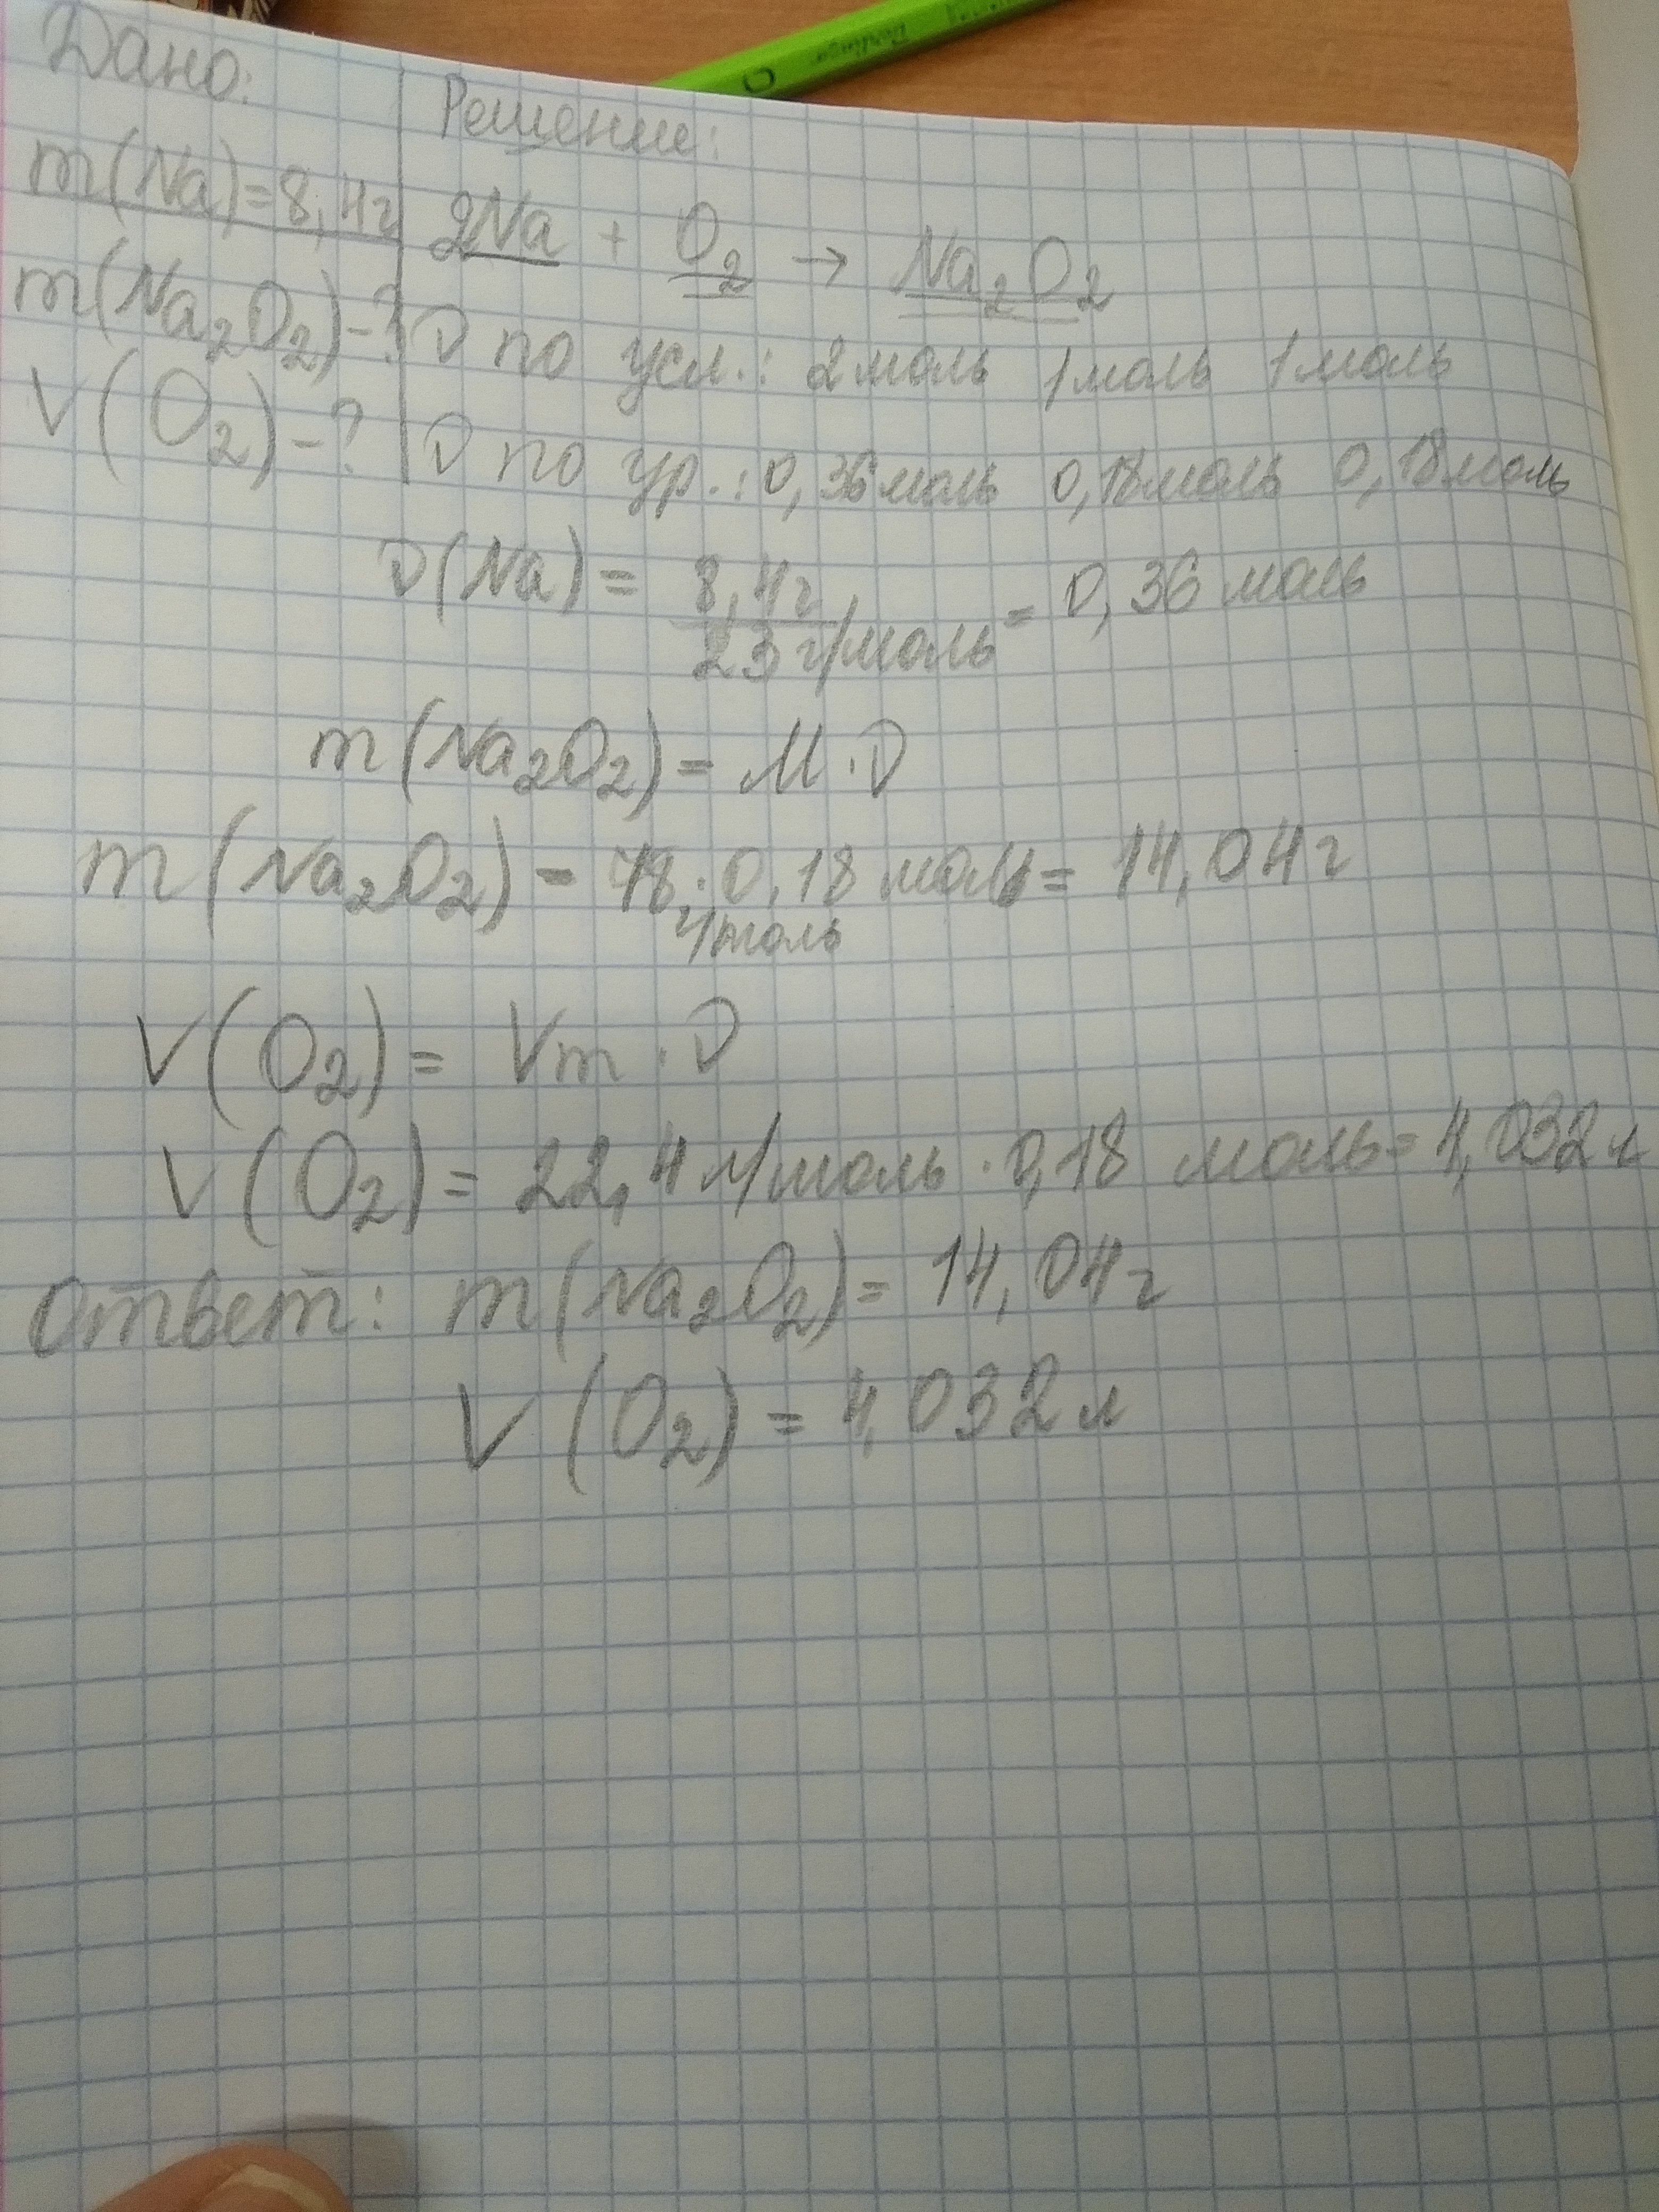 Дано:
Решение:
m(Na)=8,4г
2Na + O₂ → Na₂O₂
m(Na₂O₂)-?
ν по усл.: 2моль 1моль 1моль
V(O₂)-?
ν по ур.: 0,36моль 0,18моль 0,18моль
ν(Na) = 8,4г / 23г/моль = 0,36 моль
m(Na₂O₂) = M·ν
m(Na₂O₂) = 78г/моль·0,18 моль = 14,04г
V(O₂) = Vm·ν
V(O₂) = 22,4 л/моль·0,18 моль = 4,032л
Ответ: m(Na₂O₂) = 14,04г
V(O₂) = 4,032л